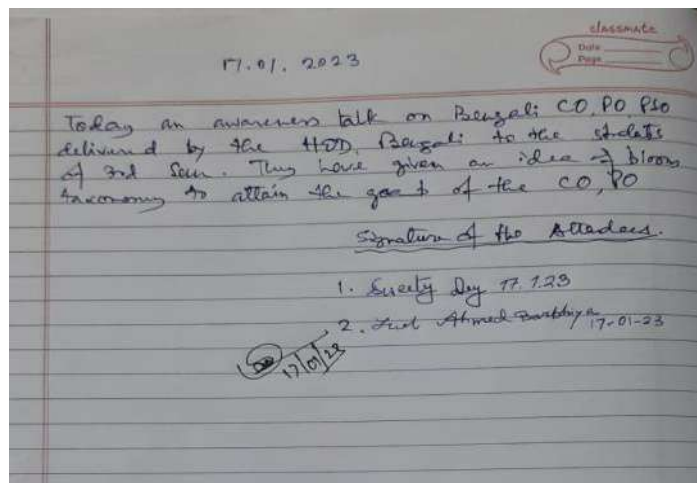 classmate
Date
Page
17.01.2023
Today an awareness talk on Bengali CO, PO, PSO
delivered by the HOD, Bengali to the students
of 3rd Sem. They have given an idea of bloom
taxonomy to attain the goal of the CO, PO
Signature of the Attadees.
1. Sweety Dey 17.1.23
2. Ahmed 17-01-23
17/01/23